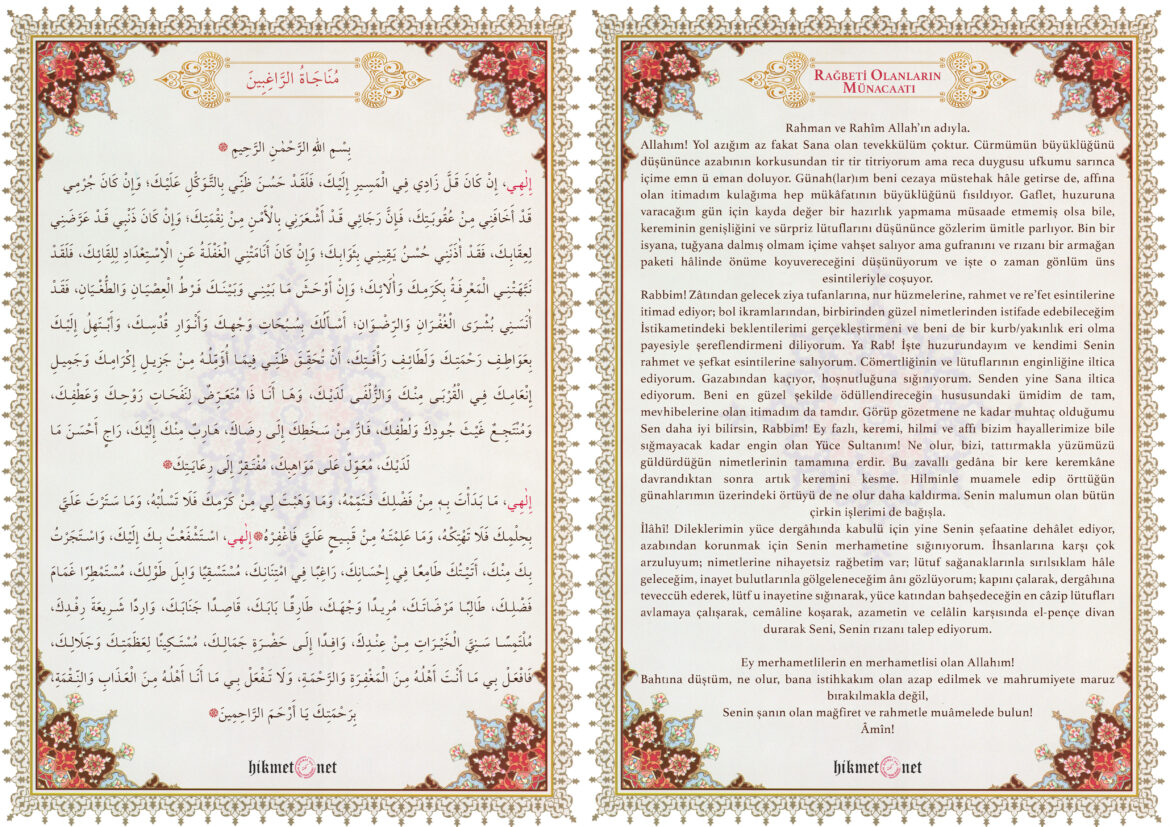 مُنَاجَاةُ الرَّاغِبِينَ
بِسْمِ اللهِ الرَّحْمٰنِ الرَّحِيمِ
إِلٰهِي، إِنْ كَانَ قَلَّ زَادِي فِي الْمَسِيرِ إِلَيْكَ، فَلَقَدْ حَسُنَ ظَنِّي بِالتَّوَكُّلِ عَلَيْكَ؛ وَإِنْ كَانَ جُرْمِي
قَدْ أَخَافَنِي مِنْ عُقُوبَتِكَ، فَإِنَّ رَجَائِي قَدْ أَشْعَرَنِي بِالْأَمْنِ مِنْ نِقْمَتِكَ؛ وَإِنْ كَانَ ذَنْبِي قَدْ عَرَّضَنِي
لِعِقَابِكَ، فَقَدْ أٰذَنَنِي حُسْنُ يَقِينِي بِثَوَابِكَ؛ وَإِنْ كَانَ أَنَامَتْنِي الْغَفْلَةُ عَنِ الْاِسْتِعْدَادِ لِلِقَائِكَ، فَلَقَدْ
نَبَّهَتْنِي الْمَعْرِفَةُ بِكَرَمِكَ وَأٰلَائِكَ؛ وَإِنْ أَوْحَشَ مَا بَيْنِي وَبَيْنَكَ فَرْطُ الْعِصْيَانِ وَالطُّغْيَانِ، فَقَدْ
أٰنَسَنِي بُشْرَى الْغُفْرَانِ وَالرِّضْوَانِ؛ أَسْأَلُكَ بِسُبُحَاتِ وَجْهِكَ وَأَنْوَارِ قُدْسِكَ، وَأَبْتَهِلُ إِلَيْكَ
بِعَوَاطِفِ رَحْمَتِكَ وَلَطَائِفِ رَأْفَتِكَ، أَنْ تُحَقِّقَ ظَنِّي فِيمَا أُؤَمِّلُهُ مِنْ جَزِيلِ إِكْرَامِكَ وَجَمِيلِ
إِنْعَامِكَ فِي الْقُرْبَى مِنْكَ وَالزُّلْفَى لَدَيْكَ، وَهَا أَنَا ذَا مُتَعَرِّضٌ لِنَفَحَاتِ رَوْحِكَ وَعَطْفِكَ،
وَمُنْتَجِعٌ غَيْثَ جُودِكَ وَلُطْفِكَ، فَارٌّ مِنْ سَخَطِكَ إِلَى رِضَاكَ، هَارِبٌ مِنْكَ إِلَيْكَ، رَاجٍ أَحْسَنَ مَا
لَدَيْكَ، مُعَوِّلٌ عَلَى مَوَاهِبِكَ، مُفْتَقِرٌ إِلَى رِعَايَتِكَ
إِلٰهِي، مَا بَدَأْتَ بِهِ مِنْ فَضْلِكَ فَتَمِّمْهُ، وَمَا وَهَبْتَ لِي مِنْ كَرَمِكَ فَلَا تَسْلُبْهُ، وَمَا سَتَرْتَ عَلَيَّ
بِحِلْمِكَ فَلَا تَهْتِكْهُ، وَمَا عَلِمْتَهُ مِنْ قَبِيحٍ عَلَيَّ فَاغْفِرْهُ إِلٰهِي، اسْتَشْفَعْتُ بِكَ إِلَيْكَ، وَاسْتَجَرْتُ
بِكَ مِنْكَ، أَتَيْتُكَ طَامِعًا فِي إِحْسَانِكَ، رَاغِبًا فِي امْتِنَانِكَ، مُسْتَسْقِيًا وَابِلَ طَوْلِكَ، مُسْتَمْطِرًا غَمَامَ
فَضْلِكَ، طَالِبًا مَرْضَاتَكَ، مُرِيدًا وَجْهَكَ، طَارِقًا بَابَكَ، قَاصِدًا جَنَابَكَ، وَارِدًا شَرِيعَةَ رِفْدِكَ،
مُلْتَمِسًا سَنِيَّ الْخَيْرَاتِ مِنْ عِنْدِكَ، وَافِدًا إِلَى حَضْرَةِ جَمَالِكَ، مُسْتَكِينًا لِعَظَمَتِكَ وَجَلَالِكَ،
فَافْعَلْ بِي مَا أَنْتَ أَهْلُهُ مِنَ الْمَغْفِرَةِ وَالرَّحْمَةِ، وَلَا تَفْعَلْ بِي مَا أَنَا أَهْلُهُ مِنَ الْعَذَابِ وَالنِّقْمَةِ،
بِرَحْمَتِكَ يَا أَرْحَمَ الرَّاحِمِينَ
hikmet net
RAĞBETİ OLANLARIN
MÜNACAATI
Rahman ve Rahîm Allah'ın adıyla.
Allahım! Yol azığım az fakat Sana olan tevekkülüm çoktur. Cürmümün büyüklüğünü
düşününce azabının korkusundan tir tir titriyorum ama reca duygusu ufkumu sarınca
içime emn ü eman doluyor. Günah(lar)ım beni cezaya müstehak hâle getirse de, affına
olan itimadım kulağıma hep mükâfatının büyüklüğünü fısıldıyor. Gaflet, huzuruna
varacağım gün için kayda değer bir hazırlık yapmama müsaade etmemiş olsa bile,
kereminin genişliğini ve sürpriz lütuflarını düşününce gözlerim ümitle parlıyor. Bin bir
isyana, tuğyana dalmış olmam içime vahşet salıyor ama gufranını ve rızanı bir armağan
paketi hâlinde önüme koyuvereceğini düşünüyorum ve işte o zaman gönlüm üns
esintileriyle coşuyor.
Rabbim! Zâtından gelecek ziya tufanlarına, nur hüzmelerine, rahmet ve re'fet esintilerine
itimad ediyor; bol ikramlarından, birbirinden güzel nimetlerinden istifade edebileceğim
İstikametindeki beklentilerimi gerçekleştirmeni ve beni de bir kurb/yakınlık eri olma
payesiyle şereflendirmeni diliyorum. Ya Rab! İşte huzurundayım ve kendimi Senin
rahmet ve şefkat esintilerine salıyorum. Cömertliğinin ve lütuflarının enginliğine iltica
ediyorum. Gazabından kaçıyor, hoşnutluğuna sığınıyorum. Senden yine Sana iltica
ediyorum. Beni en güzel şekilde ödüllendireceğin hususundaki ümidim de tam,
mevhibelerine olan itimadım da tamdır. Görüp gözetmene ne kadar muhtaç olduğumu
Sen daha iyi bilirsin, Rabbim! Ey fazlı, keremi, hilmi ve affı bizim hayallerimize bile
sığmayacak kadar engin olan Yüce Sultanım! Ne olur, bizi, tattırmakla yüzümüzü
güldürdüğün nimetlerinin tamamına erdir. Bu zavallı gedâna bir kere keremkâne
davrandıktan sonra artık keremini kesme. Hilminle muamele edip örttüğün
günahlarımın üzerindeki örtüyü de ne olur daha kaldırma. Senin malumun olan bütün
çirkin işlerimi de bağışla.
İlâhî! Dileklerimin yüce dergâhında kabulü için yine Senin şefaatine dehâlet ediyor,
azabından korunmak için Senin merhametine sığınıyorum. İhsanlarına karşı çok
arzuluyum; nimetlerine nihayetsiz rağbetim var; lütuf sağanaklarınla sırılsıklam hâle
geleceğim, inayet bulutlarınla gölgeleneceğim ânı gözlüyorum; kapını çalarak, dergâhına
teveccüh ederek, lütf u inayetine sığınarak, yüce katından bahşedeceğin en câzip lütufları
avlamaya çalışarak, cemâline koşarak, azametin ve celâlin karşısında el-pençe divan
durarak Seni, Senin rızanı talep ediyorum.
Ey merhametlilerin en merhametlisi olan Allahım!
Bahtına düştüm, ne olur, bana istihkakım olan azap edilmek ve mahrumiyete maruz
bırakılmakla değil,
Senin şanın olan mağfiret ve rahmetle muâmelede bulun!
Âmîn!
hikmet net